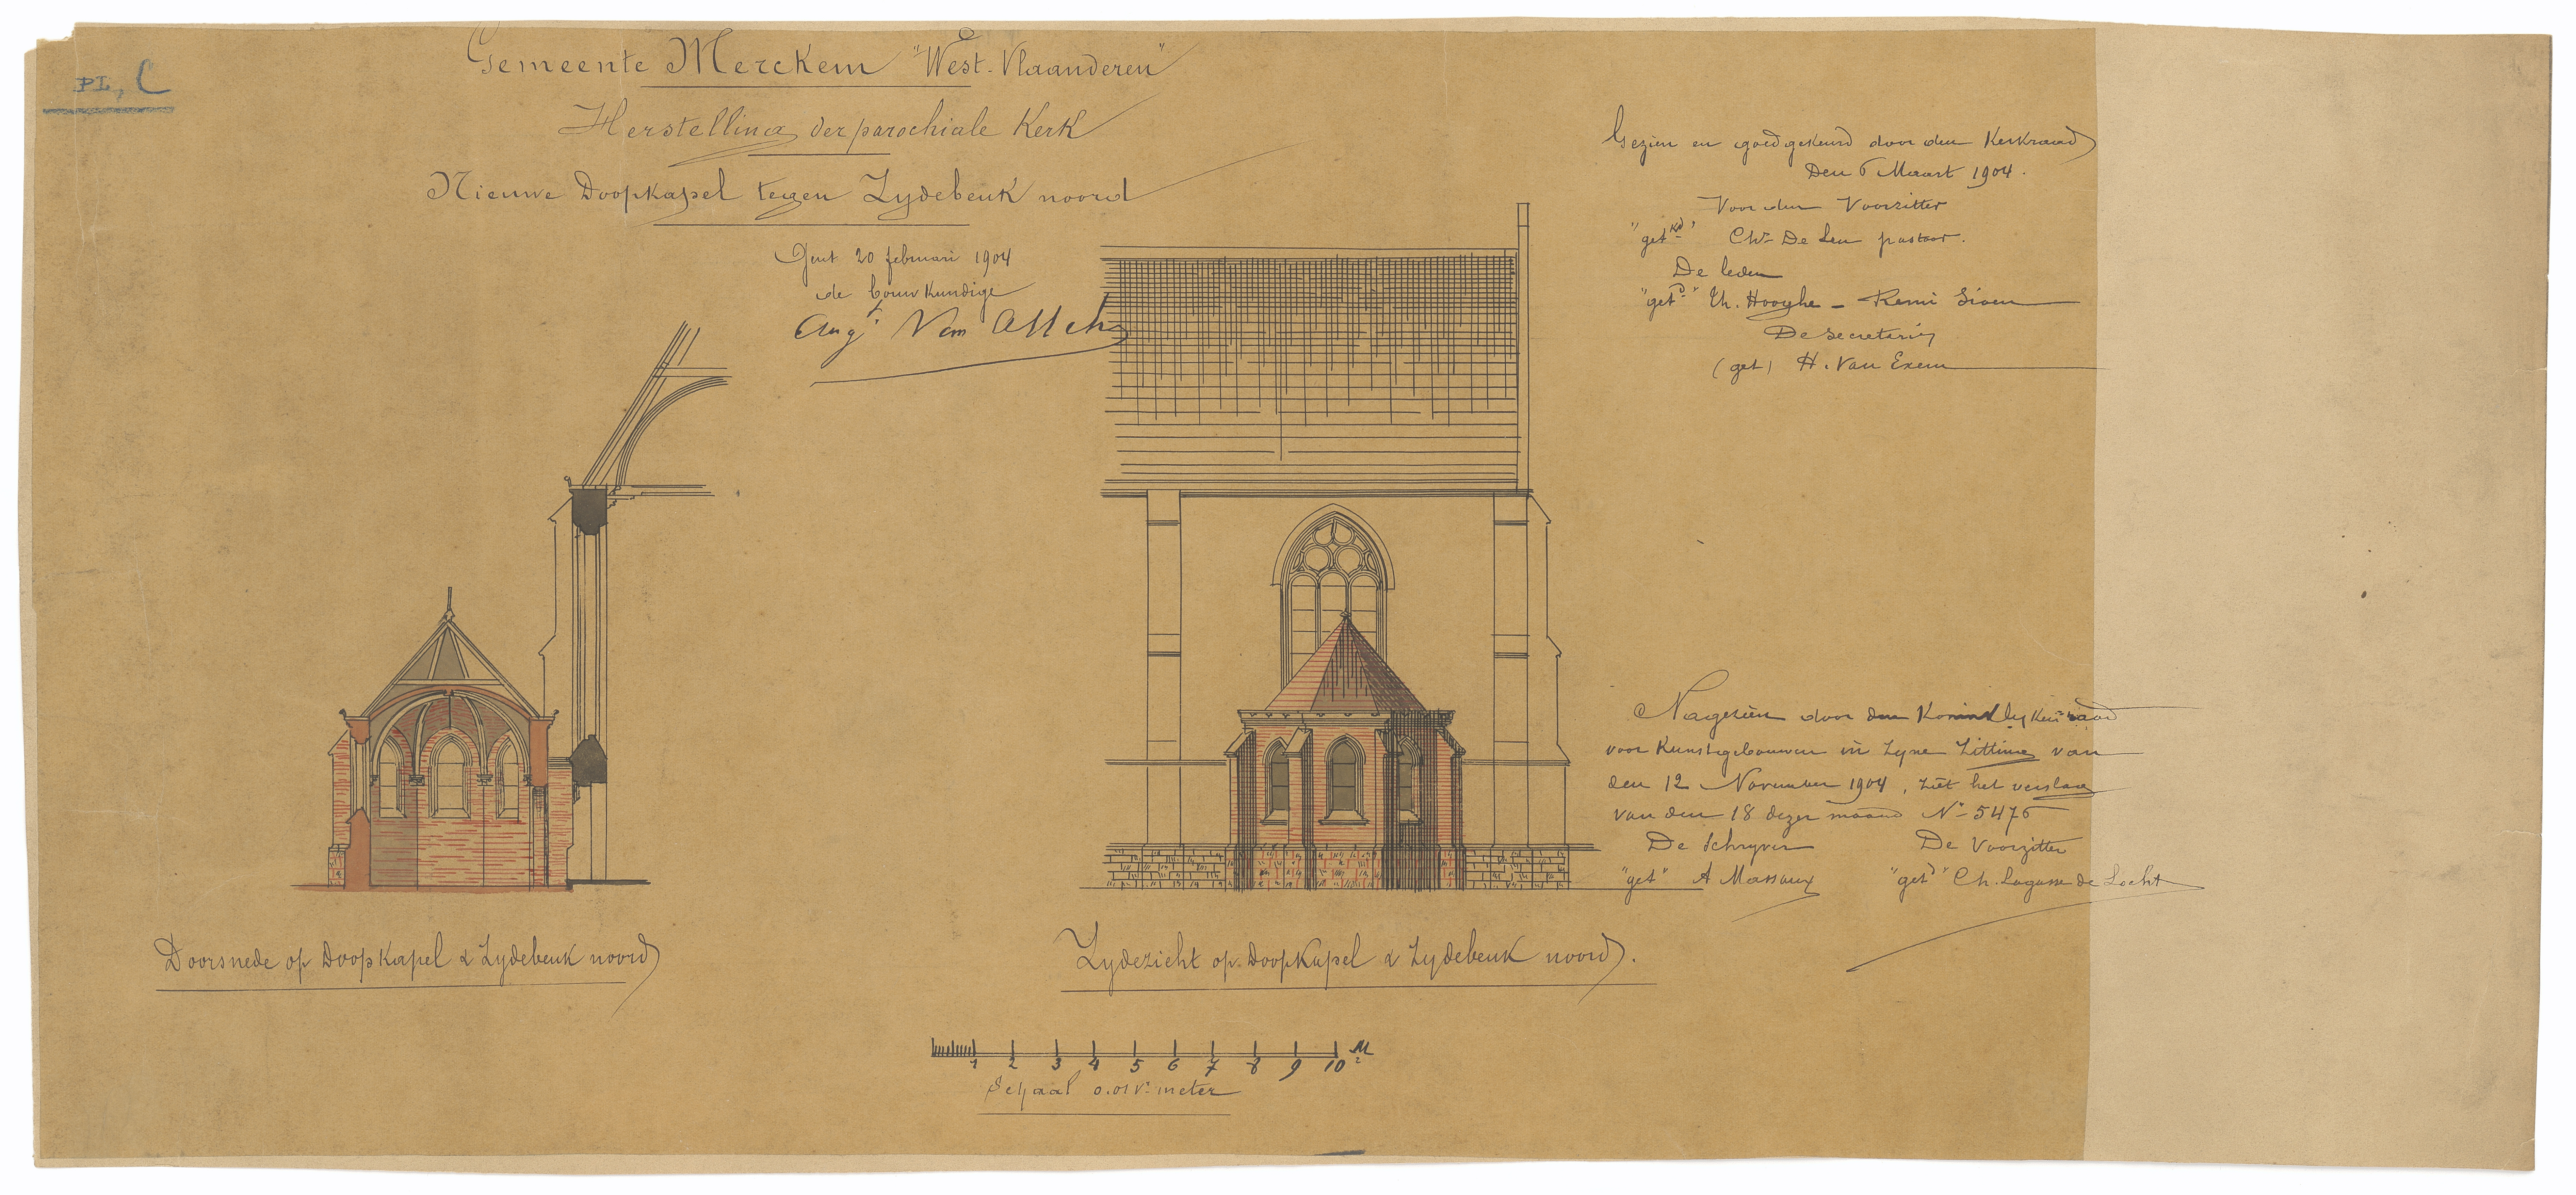 PL, C
Gemeente Merckem "West-Vlaanderen"
Herstelling der parochiale Kerk
Nieuwe Doopkapel tegen Zydebeuk noord
Gent 20 februari 1904
de bouwkundige
Augt Van Assche
Gezien en goedgekeurd door den Kerkraad
Den 6 Maart 1904.
Voor den Voorzitter
"getkd" Chs De Leu pastoor.
De leden
"getd" Th. Hooghe - Remi Sioen
De secretaris
(get) H. Van Exem
Nagezien door den Koninklyken raad
voor Kunstgebouwen in zyne Zitting van
den 12 November 1904, ziet het verslag
van den 18 dezer maand No 5476
De Schryver De Voorzitter
"get" A Massaux "getd" Ch. Lagasse de Locht
Doorsnede op Doopkapel & Zydebeuk noord
Zydezicht op Doopkapel & Zydebeuk noord.
1 2 3 4 5 6 7 8 9 10 M
Schaal 0.01 Vr meter